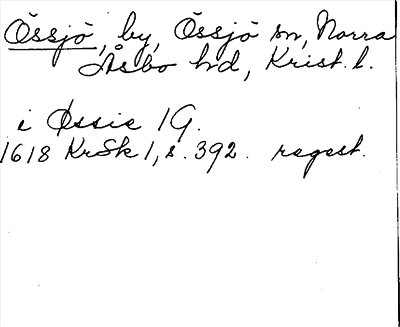 Össjö, by, Össjö sn, Norra
Åsbo hd, Krist. l.
i Øssie 1G.
1618 KrSk 1, s. 392. regest.